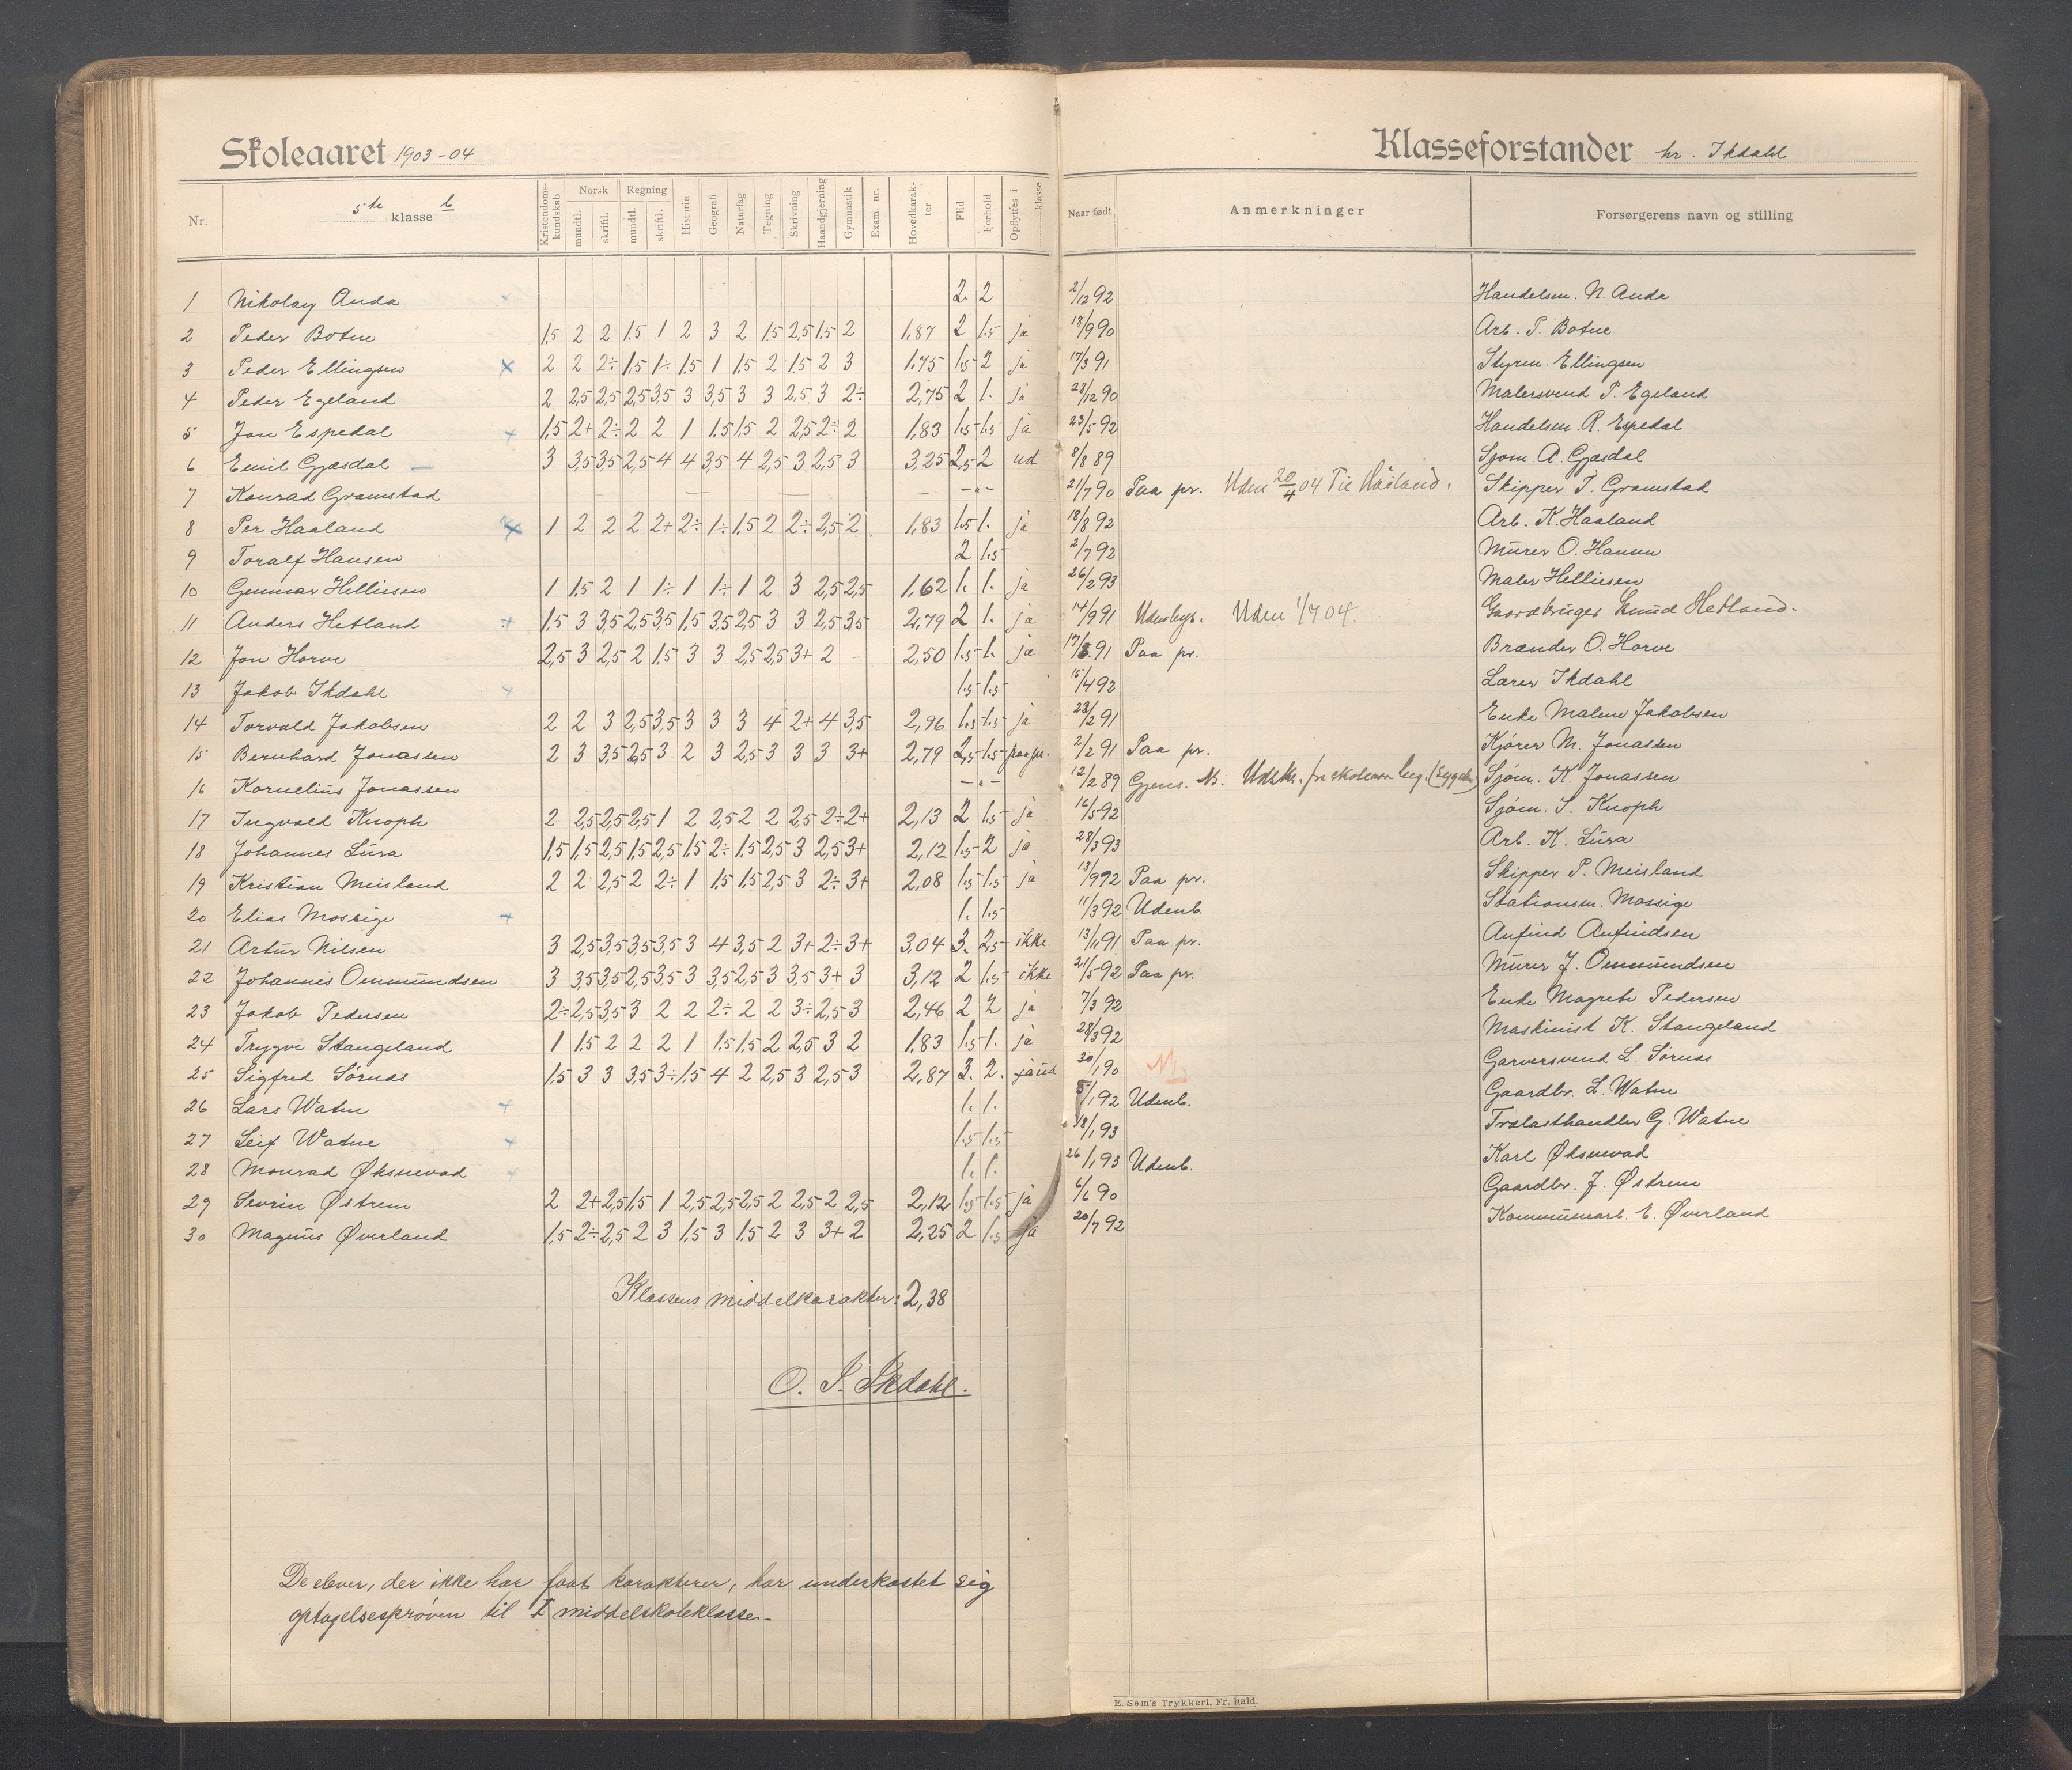 Skoleaaret 1903-04
Klasseforstander hr. Ikdahl
Nr. 5te klasse b Kristendomskundskab Norsk mundtl. skriftl. Regning mundtl. skriftl. Historie Geografi Naturfag Tegning Skrivning Haandgjerning Gymnastik Exam. nr. Hovedkarakter Flid Forhold Opflyttes i klasse Naar født Anmerkninger Forsørgerens navn og stilling
1 Nikolay Anda 2. 2 2/12 92 Handelsm. N. Anda
2 Peder Botne 1,5 2 2 1,5 1 2 3 2 1,5 2,5 1,5 2 1,87 2 1.5 ja 18/9 90 Arb. P. Botne
3 Peder Ellingsen x 2 2 2÷ 1,5 1÷ 1,5 1 1,5 2 1,5 2 3 1,75 1.5 2 ja 17/3 91 Styrm. Ellingsen
4 Peder Egeland 2 2,5 2,5 2,5 3,5 3 3,5 3 3 2,5 3 2÷ 2,75 2 1. ja 28/12 90 Malersvend P. Egeland
5 Jon Espedal + 1,5 2+ 2÷ 2 2 1 1.5 1,5 2 2,5 2÷ 2 1,83 1.5 1.5 ja 23/5 92 Handelsm. R. Espedal
6 Emil Gjesdal — 3 3,5 3,5 2,5 4 4 3,5 4 2,5 3 2,5 3 3,25 2,5 2 ud 8/8 89 Sjøm. A. Gjesdal
7 Konrad Gramstad — — — „ — 21/7 90 Paa pr. Uden 20/4 04 Til Håland. Skipper T. Gramstad
8 Per Haaland x 1 2 2 2 2+ 2÷ 1÷ 1,5 2 2÷ 2,5 2 1,83 1.5 1. ja 18/8 92 Arb. K. Haaland
9 Toralf Hansen 2 1.5 2/7 92 Murer O. Hansen
10 Gunnar Helliesen 1 1.5 2 1 1÷ 1 1÷ 1 2 3 2,5 2,5 1,62 1. 1. ja 26/2 93 Maler Helliesen
11 Anders Hetland + 1,5 3 3,5 2,5 3,5 1,5 3,5 2,5 3 3 2,5 3,5 2,79 2 1. ja 14/9 91 Udenbys. Uden 1/7 04. Gaardbruger Knud Hetland.
12 Jon Horve 2,5 3 2,5 2 1,5 3 3 2,5 2,5 3+ 2 – 2,50 1.5 1. ja 17/8 91 Paa pr. Brænder O. Horve
13 Jakob Ikdahl + 1.5 1.5 15/4 92 Lærer Ikdahl
14 Torvald Jakobsen 2 2 3 2,5 3,5 3 3 3 4 2+ 4 3,5 2,96 1.5 1.5 ja 28/2 91 Enke Malene Jakobsen
15 Bernhard Jonassen 2 3 3,5 2,5 3 2 3 2,5 3 3 3 3+ 2,79 2,5 1.5 paa pr. 2/2 91 Paa pr. Kjører M. Jonassen
16 Kornelius Jonassen — „ — 12/2 89 Sjøm. K. Jonassen
17 Ingvald Knoph 2 2,5 2,5 2,5 1 2 2,5 2 2 2,5 2÷ 2+ 2,13 2 1.5 ja 16/5 92 Sjøm. S. Knoph
18 Johannes Lura 1,5 1,5 2,5 1,5 2,5 1.5 2÷ 1,5 2,5 3 2,5 3+ 2,12 1.5 2 ja 28/3 93 Arb. K. Lura
19 Kristian Meisland 2 2 2,5 2 2÷ 1 1,5 1,5 2,5 3 2÷ 3+ 2,08 1.5 1.5 ja 13/9 92 Paa pr. Skipper P. Meisland
20 Elias Mossige + 1. 1.5 11/3 92 Udenb. Stationsm. Mossige
21 Artur Nilsen 3 2,5 3,5 3,5 3,5 3 4 3,5 2 3+ 2÷ 3+ 3,04 3. 2,5 ikke 13/11 91 Paa pr. Anfind Anfindsen
22 Johannes Ommundsen 3 3,5 3,5 2,5 3,5 3 3,5 2,5 3 3,5 3+ 3 3,12 2 1.5 ikke 21/5 92 Paa pr. Murer J. Ommundsen
23 Jakob Pedersen 2÷ 2,5 3,5 3 2 2 2÷ 2 2 3÷ 2,5 3 2,46 2 2 ja 7/3 92 Enke Magrete Pedersen
24 Trygve Stangeland 1 1.5 2 2 2 1 1.5 1,5 2 2,5 3 2 1,83 1.5 1. ja 28/3 92 Maskinist K. Stangeland
25 Sigfred Sørnæs 1,5 3 3 3,5 3÷ 1,5 4 2 2,5 3 2,5 3 2,87 3. 2. ja ud 30/1 90 Garversvend L. Sørnæs
26 Lars Watne + 1. 1. 5/1 92 Udenb. Gaardbr. L. Watne
27 Leif Watne + 1.5 1.5 18/1 93 Trælasthandler G. Watne
28 Monrad Øksnevad + 1. 1. 26/1 93 Udenb. Karl Øksnevad
29 Sevrin Østrem 2 2+ 2,5 1,5 1 2,5 2,5 2,5 2 2,5 2 2,5 2,12 1.5 1.5 ja 6/6 90 Gaardbr. J. Østrem
30 Magnus Øverland 1,5 2÷ 2,5 2 3 1,5 3 1.5 2 3 3+ 2 2,25 2 1.5 ja 20/7 92 Kommunearb. E. Øverland
Klassens middelkarakter: 2,38
O. S. Ikdahl.
De elever, der ikke har faat karakterer, har underkastet sig
optagelsesprøven til I middelskoleklasse.
E. Sem's Trykkeri, Fr. hald.